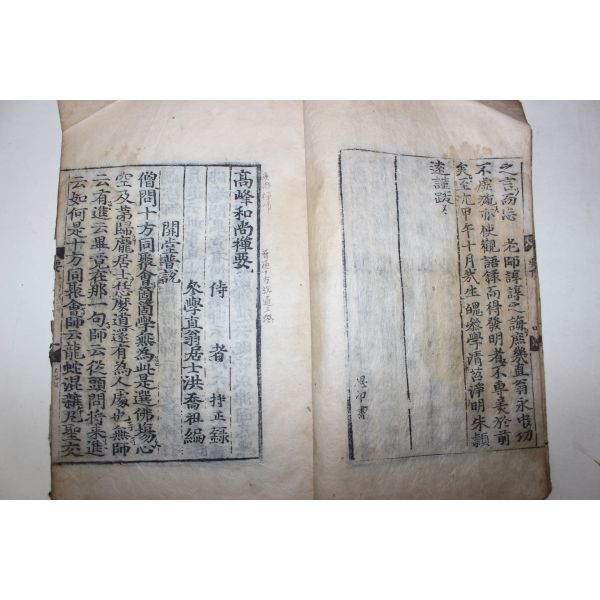 之言而忘 老師諄諄之誨庶樂直翁永中功
不虛施亦使觀語錄而得發明者不專美於前
矣至元甲午十月㢤生魄叅學清苕淨明朱頴
遠謹跋
高峰和尚禪要
侍者 持正 錄
叅學直翁居士洪喬祖編
開堂普說
僧問十方同聚會箇箇學無為此是選佛場心
空及第歸龐居士恁麽道還有為人處也無師
云有進云畢竟在那一句師云從頭問將來進
云如何是十方同聚會師云龍蛇混雜凡聖交